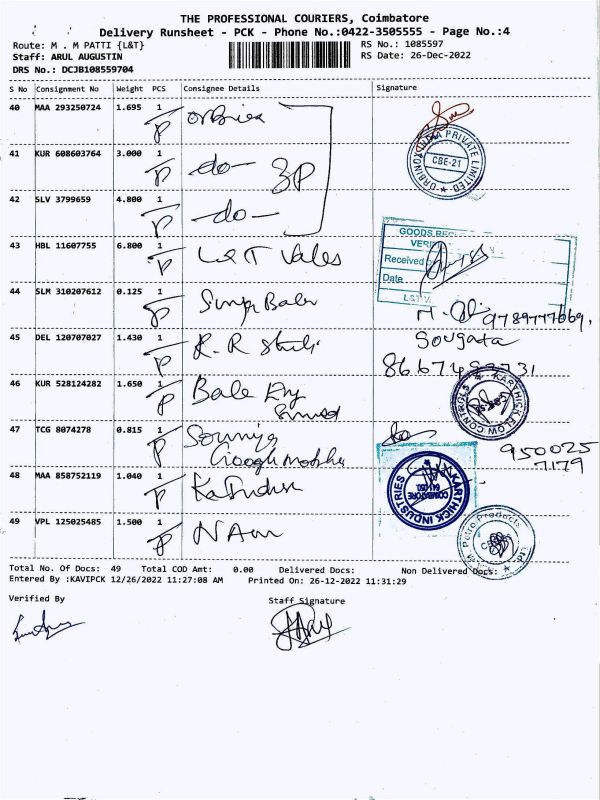 THE PROFESSIONAL COURIERS, Coimbatore
Delivery Runsheet - PCK - Phone No.:0422-3505555 - Page No.:4
Route: M . M PATTI {L&T}
RS No.: 1085597
Staff: ARUL AUGUSTIN
RS Date: 26-Dec-2022
DRS No.: DCJB108559704
S No Consignment No Weight PCS Consignee Details Signature
40 MAA 293250724 1.695 1
P
41 KUR 608603764 3.000 1 -do- 3P
P
42 SLV 3799659 4.800 1 -do-
P
ORBINOX INDIA PRIVATE LIMITED
CBE-21
43 HBL 11607755 6.800 1 L&T Vales
P
GOODS
Received
Date
L&T
44 SLM 310207612 0.125 1
P
9789777669.
45 DEL 120707027 1.430 1 R.R
P
Sougata
46 KUR 528124282 1.650 1 Bale
P
KARTHICK FLOW CONTROLS
47 TCG 8074278 0.815 1 Soumya
P
950025
7179
48 MAA 858752119 1.040 1
P
KARTHICK INDUSTRIES
COIMBATORE
49 VPL 125025485 1.500 1
P
Petro Products Ltd
Total No. Of Docs: 49 Total COD Amt: 0.00 Delivered Docs: Non Delivered Docs:
Entered By :KAVIPCK 12/26/2022 11:27:08 AM Printed On: 26-12-2022 11:31:29
Verified By Staff Signature